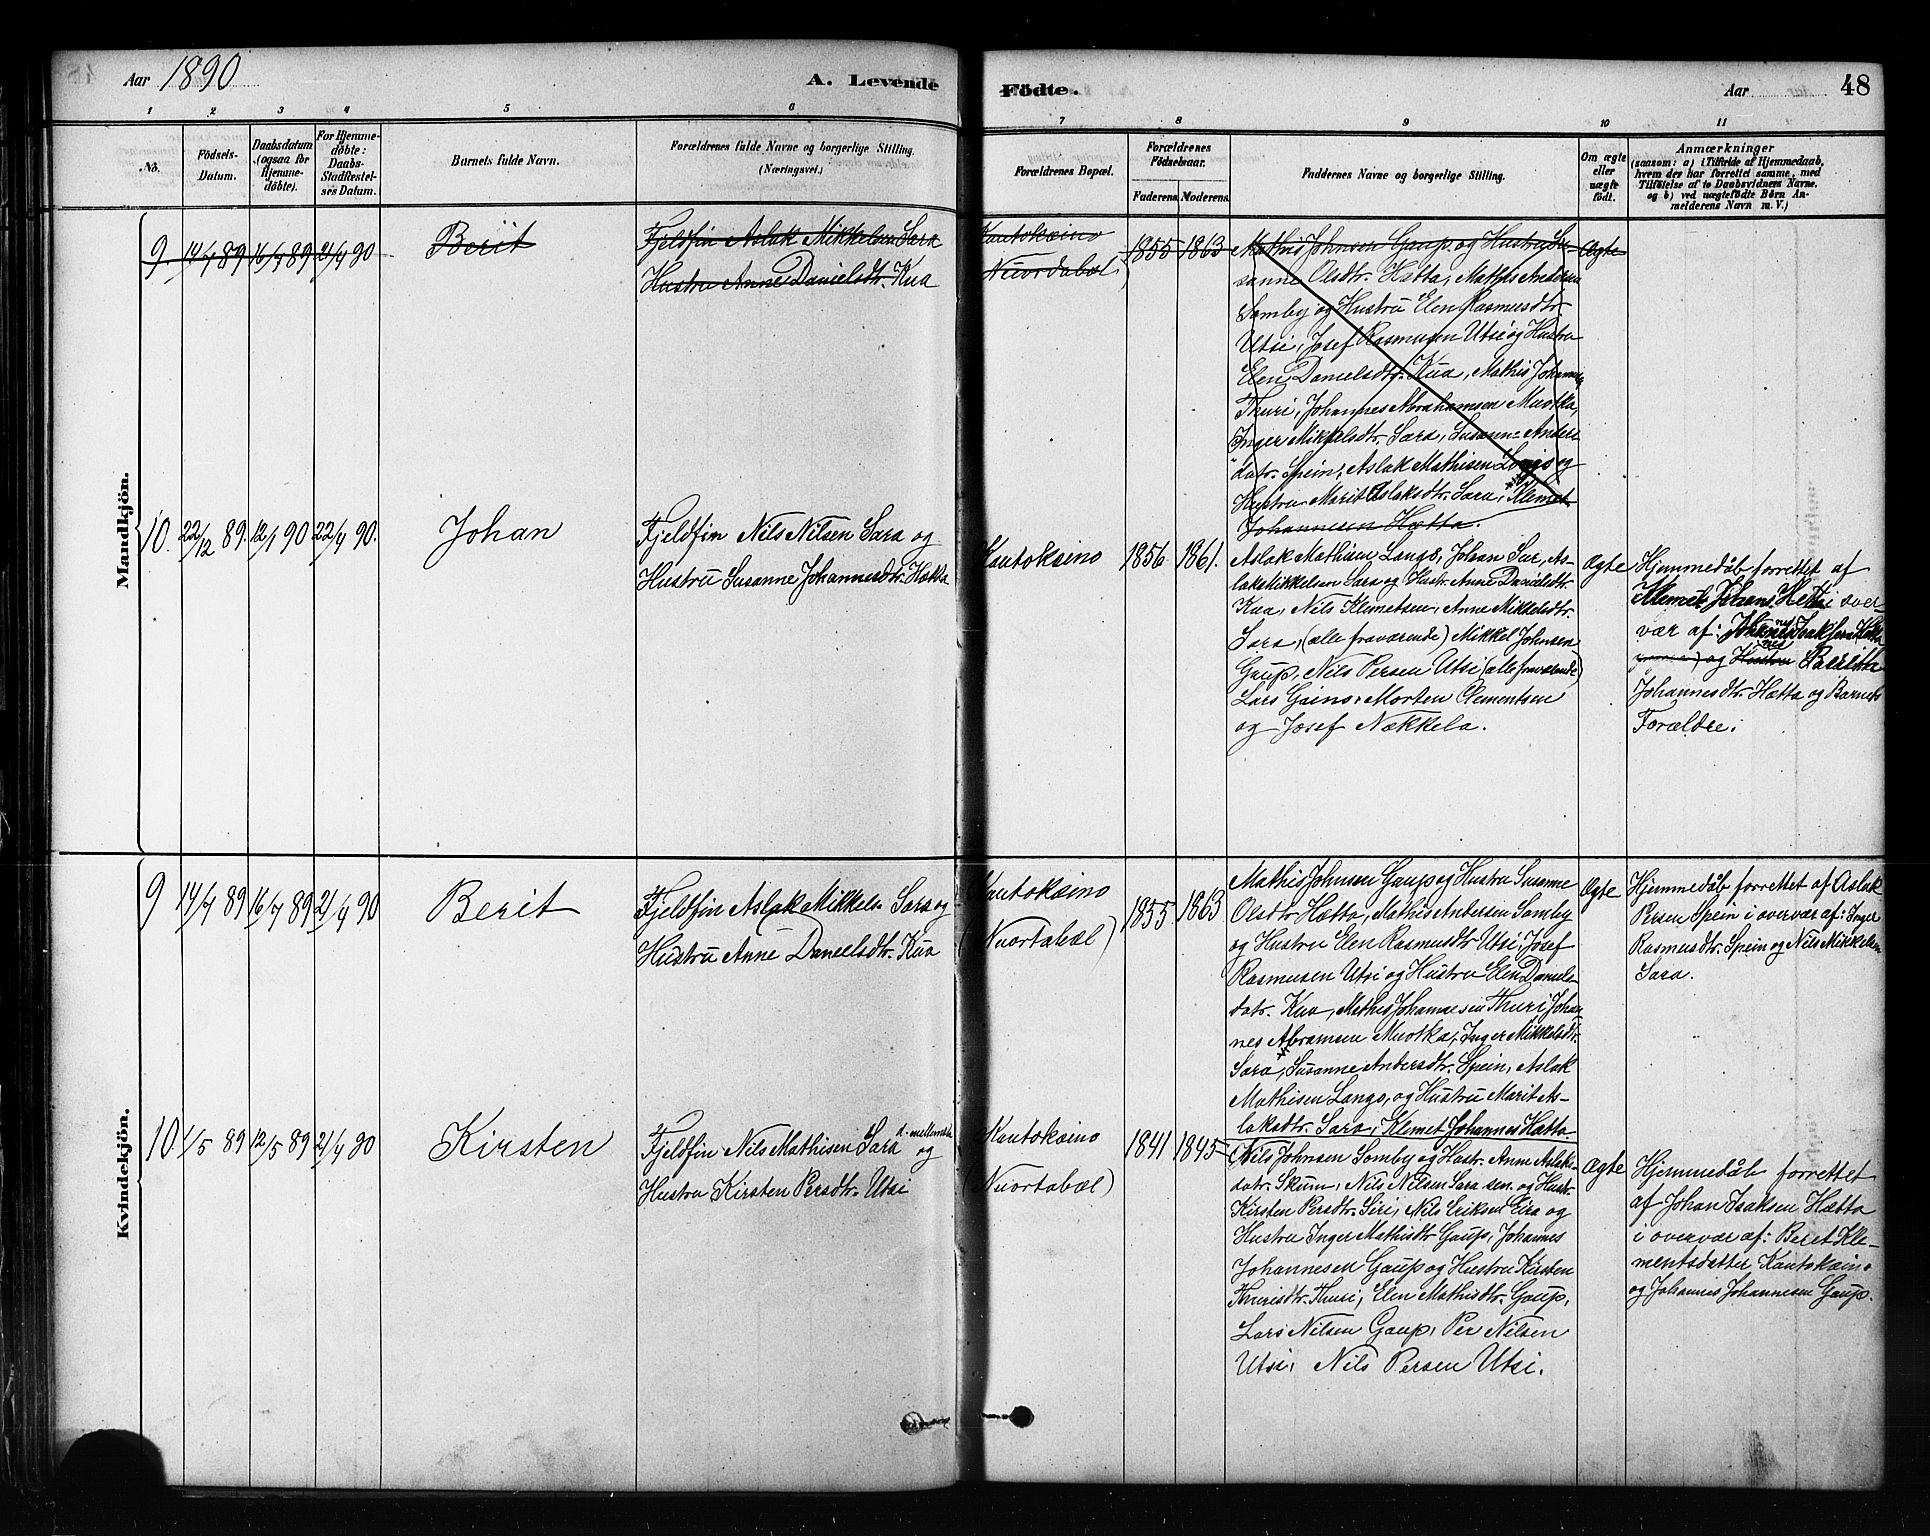 Aar 1890
A. Levende
Födte.
Aar
48
1 2 3 4 5 6 7 8 9 10 11
No.
Födsels-
Datum.
Daabsdatum
(ogsaa for
Hjemme-
döbte).
For Hjemme-
döbte:
Daabs-
Stadfæstel-
ses Datum.
Barnets fulde Navn.
Forældrenes fulde Navne og borgerlige Stilling.
(Næringsvei.)
Forældrenes Bopæl.
Forældrenes
Födselsaar.
Faderens. Moderens.
Faddernes Navne og borgerlige Stilling.
Om ægte
eller
uægte
födt.
Anmærkninger
(saasom: a) i Tilfælde af Hjemmedaab,
hvem der har forrettet samme, med
Tilföielse af to Daabsvidners Navne,
og b) ved uægtefödte Börn An-
melderens Navn m. V.)
Mandkjön.
9. 14/7 89 16/7 89 21/4 90
Berit
Fjeldfin Aslak Mikkelsen Sara
Hustru Anne Danielsdtr. Kua
Kautokæino
Nuordabæl
1855 1863
Mathis Johnsen Gaup og Hustru Su-
sanne Olsdtr. Hætta, Mathis Andersen
Somby og Hustru Elen Rasmusdtr.
Utsi, Josef Rasmusen Utsi og Hustru
Elen Danielsdtr. Kua, Mathis Johannes
Thuri, Johannes Abrahamsen Muotka,
Inger Mikkelsdtr. Sara, Susanne Anders
datr. Spein, Aslak Mathisen Longs og
Hustru Marit Aslaksdtr. Sara, Klemet
Johannesen Hætta.
Ægte
10. 22/12 89. 12/1 90 22/4 90.
Johan
Fjeldfin Nils Nilsen Sara og
Hustru Susanne Johannesdtr. Hætta
Kautokæino
1856 1861.
Aslak Mathisen Langs, Johan Sur, As-
lak Mikkelsen Sara og Hustr. Anne Danielsdtr.
Kua, Nils Klemetsen, Anne Mikkelsdtr.
Sara, (alle fraværende) Mikkel Johnsen
Gaup, Nils Persen Utsi (alle fraværende)
Lars Gaino, Morten Clementsen
og Josef Nækkela.
Ægte
Hjemmedåb forrettet af
Klemet Johans. Hætta i over-
vær af: Isaksen Hætta
og Hustru Beritha
Johannesdtr. Hætta og Barnets
Forældre.
Kvindekjön.
9 14/7 89 16/7 89 21/4 90
Berit
Fjeldfin Aslak Mikkelsn Sara og
Hustru Anne Danielsdtr. Kua
Kautokæino
(Nuortabæl)
1855 1863
Mathis Johnsen Gaup og Hustru Susanne
Olsdtr. Hætta, Mathis Andersen Somby
og Hustru Elen Rasmusdtr Utsi, Josef
Rasmusen Utsi og Hustru Elen Daniels-
datr. Kua, Mathis Johannesen Thuri, Johan-
nes Abramsen Muotka, Inger Mikkelsdtr.
Sara, Susanne Andersdtr. Spein, Aslak
Mathisen Longs, og Hustru Marit As-
laksdtr. Sara, Klemet Johannes Hætta
Ægte
Hjemmedåb forrettet af Aslak
Persen Spein i overvær af: Inger
Rasmusdtr. Spein og Nils Mikkelsen
Sara.
10 1/5 89 12/5 89 21/4 90
Kirsten
Fjeldfin Nils Mathisen Sara d. mellemste og
Hustru Kirsten Persdtr. Utsi
Kautokæino
(Nuortabæl)
1841 1845
Nils Johnsen Somby og Hustr. Anne Aslaks-
datr. Skum, Nils Nilsen Sara sen. og Hustr.
Kirsten Persdtr. Siri, Nils Eriksen Eira og
Hustru Inger Mathisdtr Gaup, Johannes
Johannesen Gaup og Hustru Kirsten
Henriksdtr. Thuri, Elen Mathisdtr. Gaup,
Lars Nilsen Gaup, Per Nilsen
Utsi, Nils Persen Utsi.
Ægte
Hjemmedåb forrettet
af Johan Isaksen Hætta
i overvær af: Beret Kle-
mentsdatter Kautokæino
og Johannes Johannesen Gaup.